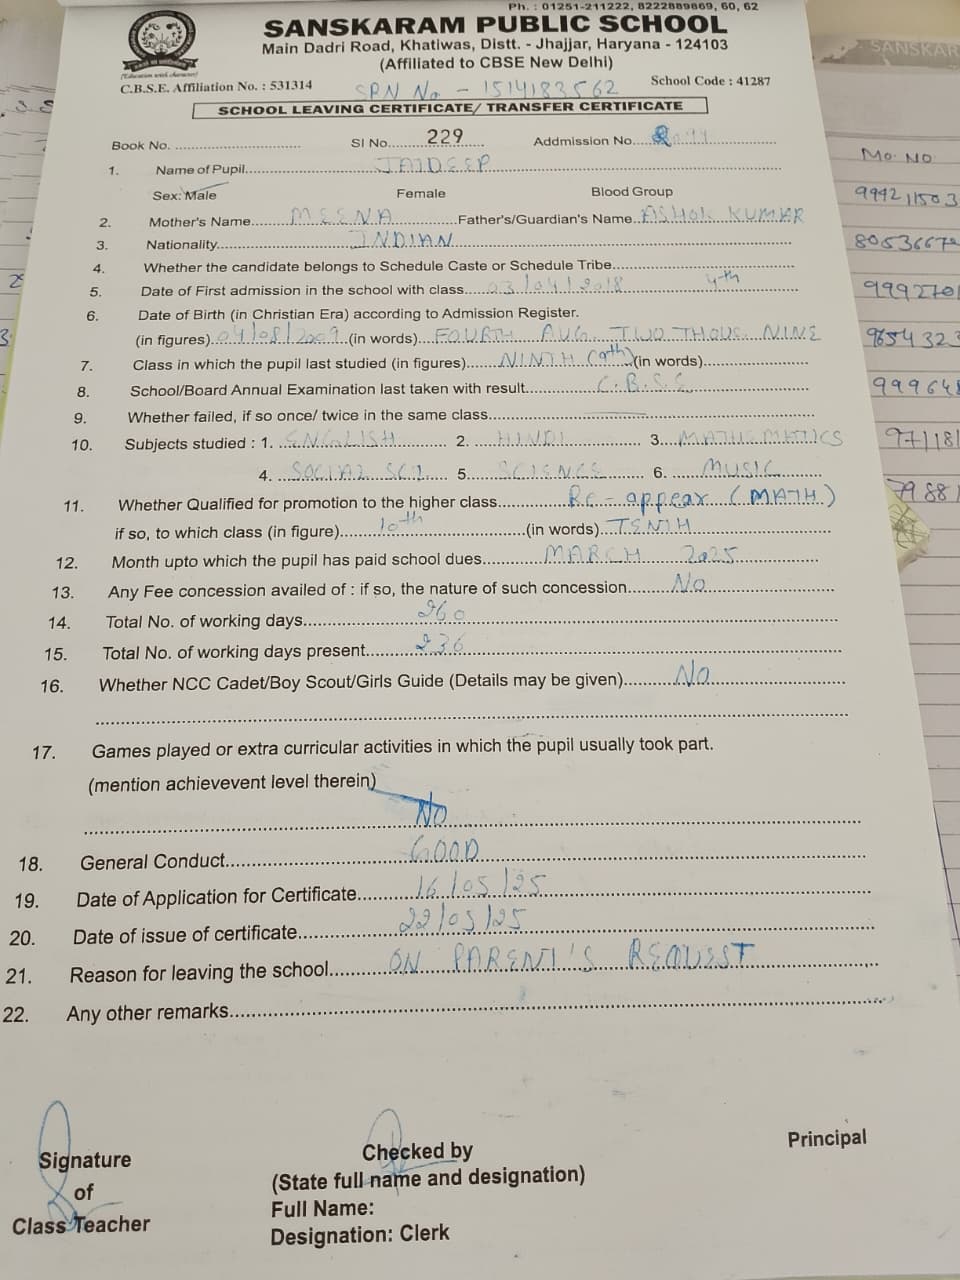 Ph. : 01251-211222, 8222889869, 60, 62
SANSKARAM PUBLIC SCHOOL
Main Dadri Road, Khatiwas, Distt. - Jhajjar, Haryana - 124103
(Affiliated to CBSE New Delhi)
(Education with character)
C.B.S.E. Affiliation No. : 531314 SRN No - 1514183562 School Code : 41287
SCHOOL LEAVING CERTIFICATE/ TRANSFER CERTIFICATE
Book No. SI No. 229 Addmission No.
1. Name of Pupil JAIDEEP
Sex: Male Female Blood Group
2. Mother's Name MEENA Father's/Guardian's Name ASHOK KUMAR
3. Nationality INDIAN
4. Whether the candidate belongs to Schedule Caste or Schedule Tribe
5. Date of First admission in the school with class 03/04/2018 4th
6. Date of Birth (in Christian Era) according to Admission Register.
(in figures) 04/08/2009 (in words) FOURTH AUG. TWO THOUS. NINE
7. Class in which the pupil last studied (in figures) NINTH (9th) (in words)
8. School/Board Annual Examination last taken with result C.B.S.E
9. Whether failed, if so once/ twice in the same class
10. Subjects studied : 1. ENGLISH 2. HINDI 3. MATHEMATICS
4. SOCIAL SCI. 5. SCIENCE 6. MUSIC
11. Whether Qualified for promotion to the higher class Re-appear (MATH)
if so, to which class (in figure) 10th (in words) TENTH
12. Month upto which the pupil has paid school dues MARCH 2025
13. Any Fee concession availed of : if so, the nature of such concession No
14. Total No. of working days 260
15. Total No. of working days present 236
16. Whether NCC Cadet/Boy Scout/Girls Guide (Details may be given) No
17. Games played or extra curricular activities in which the pupil usually took part.
(mention achievevent level therein)
No
18. General Conduct GOOD
19. Date of Application for Certificate 16/05/25
20. Date of issue of certificate 22/05/25
21. Reason for leaving the school ON PARENT'S REQUEST
22. Any other remarks
Signature
of
Class Teacher
Checked by
(State full name and designation)
Full Name:
Designation: Clerk
Principal
SANSKAR
Mo. NO